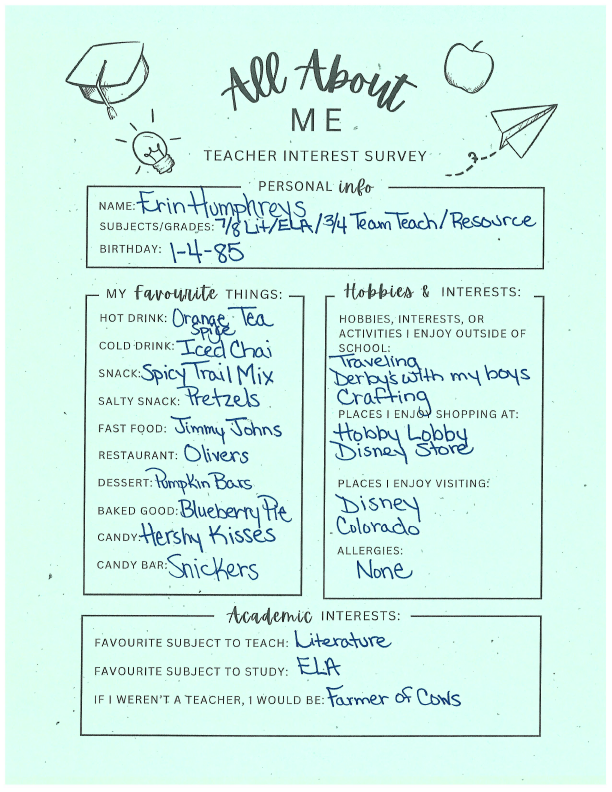 All About
ME
TEACHER INTEREST SURVEY
PERSONAL info
NAME: Erin Humphreys
SUBJECTS/GRADES: 7/8 Lit/ELA/3/4 Team Teach/Resource
BIRTHDAY: 1-4-85
MY Favourite THINGS:
HOT DRINK: Orange Tea
Spice
COLD DRINK: Iced Chai
SNACK: Spicy Trail Mix
SALTY SNACK: Pretzels
FAST FOOD: Jimmy Johns
RESTAURANT: Olivers
DESSERT: Pumpkin Bars
BAKED GOOD: Blueberry Pie
CANDY: Hershy Kisses
CANDY BAR: Snickers
Hobbies & INTERESTS:
HOBBIES, INTERESTS, OR
ACTIVITIES I ENJOY OUTSIDE OF
SCHOOL:
Traveling
Derby's with my boys
Crafting
PLACES I ENJOY SHOPPING AT:
Hobby Lobby
Disney Store
PLACES I ENJOY VISITING:
Disney
Colorado
ALLERGIES:
None
Academic INTERESTS:
FAVOURITE SUBJECT TO TEACH: Literature
FAVOURITE SUBJECT TO STUDY: ELA
IF I WEREN'T A TEACHER, I WOULD BE: Farmer of Cows